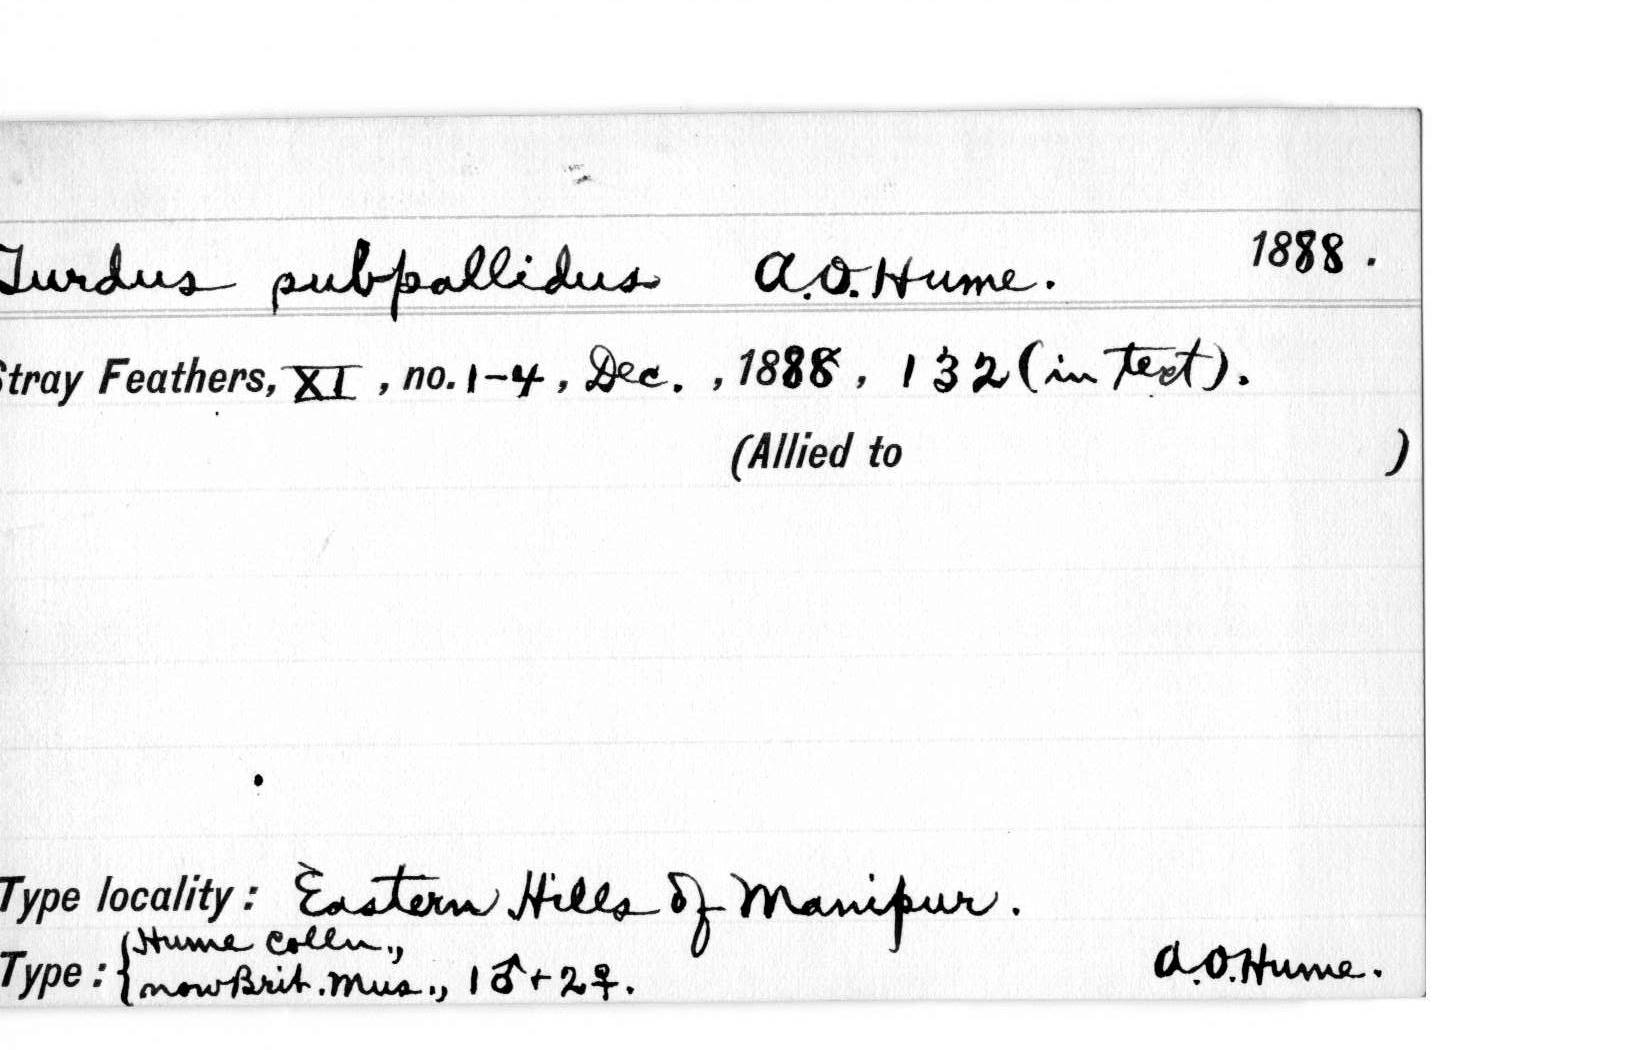 Turdus subpallidus A.O. Hume. 1888.
Stray Feathers, XI, no. 1-4, Dec., 1888, 132 (in text).
(Allied to )
Type locality: Eastern Hills of Manipur.
Type: { Hume Colln.,
now Brit. Mus., 1♂ + 2♀. A.O. Hume.